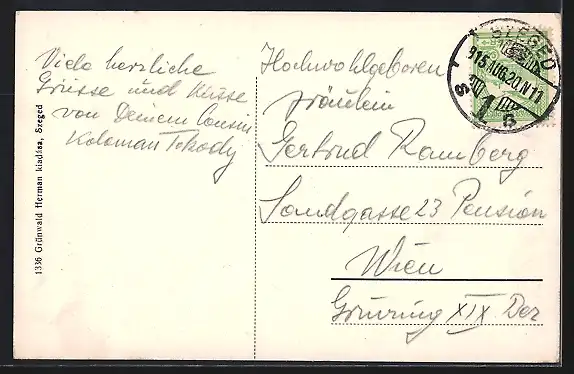 Viele herzliche
Grüsse und Küsse
von Deinem Cousin
Koloman Tokody
1336 Grünwald Herman kiadása, Szeged
Hochwohlgeboren
Fräulein
Gertrud Ramberg
Sandgasse 23 Pension
Wien
Grinzing XIX. Bez
SZEGED
915 AUG. 20. N 11